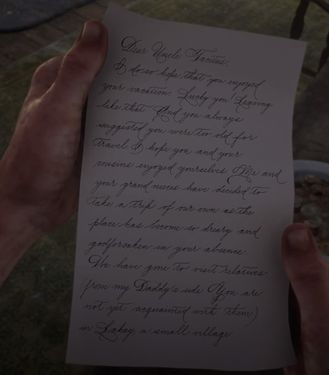 Dear Uncle Tacitus,
I do so hope that you enjoyed
your vacation. Lucky you Leaving
like that. And you always
suggested you were too old for
travel. I hope you and your
cousins enjoyed yourselves. Me and
your grand nieces have decided to
take a trip of our own as the
place has become so dreary and
godforsaken in your absence.
We have gone to visit relatives
from my Daddy's side (You are
not yet acquainted with them)
in Lakay, a small village